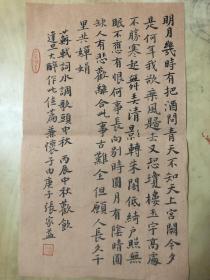 明月幾時有把酒問青天不知天上宮闕今夕
是何年我欲乘風歸去又恐瓊樓玉宇高處
不勝寒起舞弄清影轉朱閣低綺户照無
眠不應有恨何事長向别時圓月有陰晴圓
缺人有悲歡離合此事古難全但願人長久千
里共嬋娟
蘇軾詞水調歌頭中秋 丙辰中秋歡飲
達旦大醉作此篇兼懷子由庚子張家